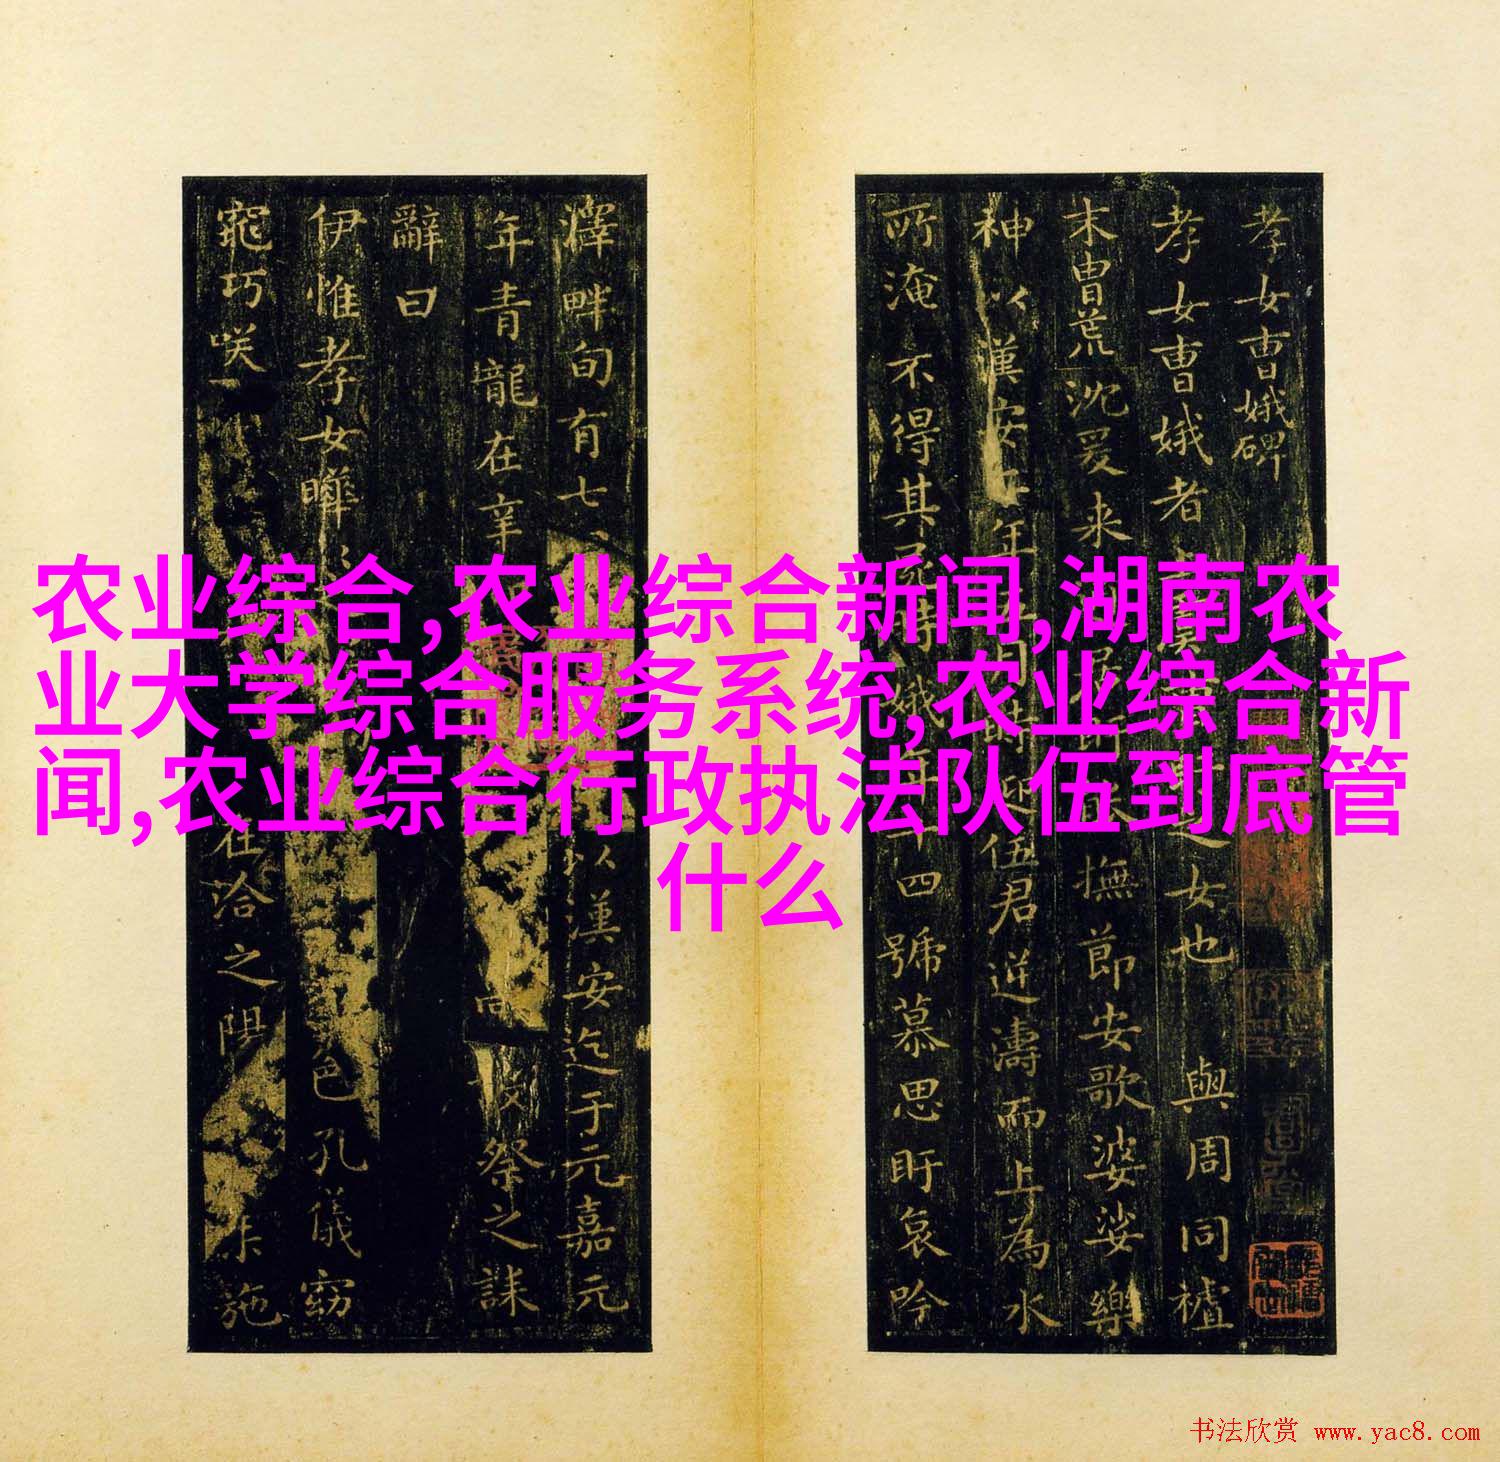 农业综合,农业综合新闻,湖南农
业大学综合服务系统,农业综合新
闻,农业综合行政执法队伍到底管
什么
孝女曹娥碑
孝女曹娥者 之女也 與周同禇
末胄荒沈爰来 撫節安歌婆娑樂
神以漢安 年 時迎伍君逆濤而上為水
所淹不得其 娥 十四號慕思盱哀吟
澤畔旬有七 以漢安迄于元嘉元
年青龍在辛 祭之誄
辭曰
伊惟孝女曄 色孔儀窈
窕巧咲 在洽之陽 施
书法欣赏 www.yac8.com